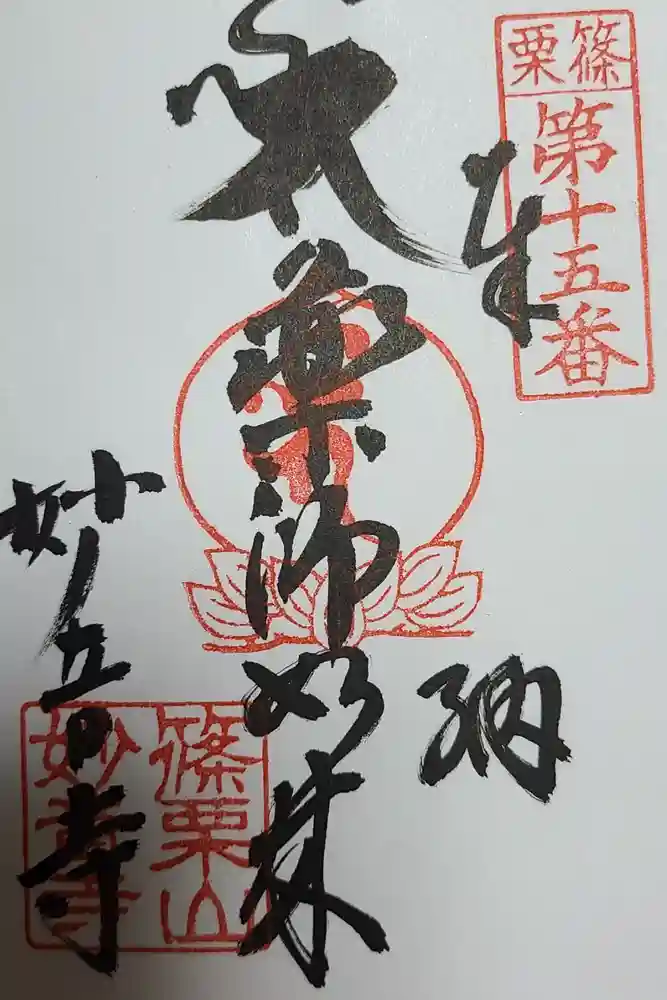 篠栗
第十五番
奉
納
薬師如来
妙音寺
篠栗山
妙音寺